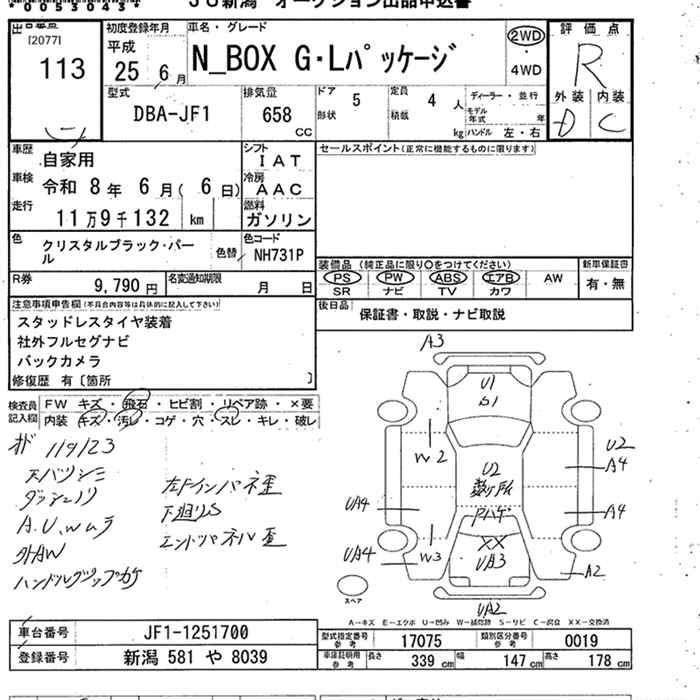 *00530434*
JU新潟 オークション出品申込書
[20771
113
初度登録年月
平成
25 年 6 月
車名・グレード
N_BOX G・Lパッケージ
2WD
4WD
評価点
R
外装 内装
D C
型式
DBA-JF1
排気量
658
CC
ドア 5
形状
定員 4 人
積載 kg
ディーラー・並行
モデル年式 年
ハンドル 左・右
車歴
自家用
シフト
IAT
車検
令和 8年 6月( 6日)
冷房
AAC
走行
11万9千132 km
燃料
ガソリン
セールスポイント(正常に機能するものに限ります)
色
クリスタルブラック・パール
色替
色コード
NH731P
装備品 (純正品に限り○をつけてください)
新車保証書
PS PW ABS エアB AW
SR ナビ TV カワ
有・無
R券
9,790 円
名変通知期限
月 日
後日品
保証書・取説・ナビ取説
注意事項申告欄(不具合内容等は具体的に記入して下さい)
スタッドレスタイヤ装着
社外フルセグナビ
バックカメラ
修復歴 有〔箇所 〕
検査員記入欄
FW キズ・飛石・ヒビ割・リペア跡・×要
内装 キズ・汚レ・コゲ・穴・スレ・キレ・破レ
119123
A.U.wムラ
外AW
下廻りS
A3
U1
W2
U2
U2
A4
A4
UA4
UA4
W3
XX
UA3
A2
UA2
スペア
A－キズ E－エクボ U－凹み W－補修跡 S－サビ C－腐食 XX－交換済
車台番号
JF1-1251700
登録番号
新潟 581 や 8039
型式指定番号
参考
17075
類別区分番号
参考
0019
車庫証明用
参考
長さ 339 cm 幅 147 cm 高さ 178 cm